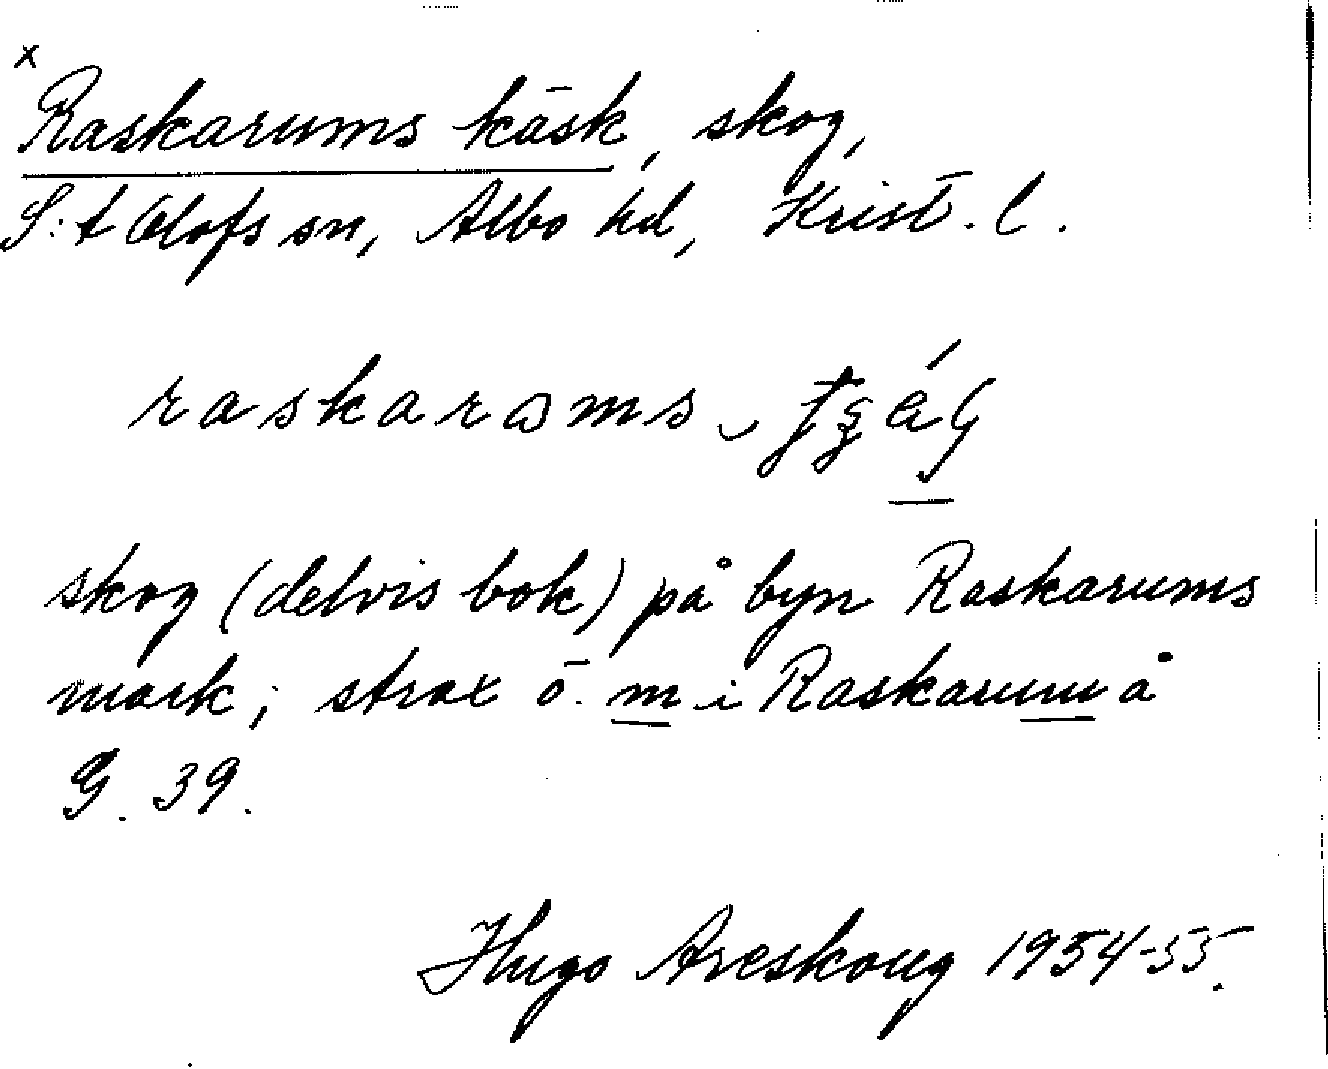 x
Raskarums käsk, skog,
S:t Olofs sn, Albo hd, Krist. l.
raskarɷms
skog (delvis bok) på byn Raskarums
mark; strax ö. m i Raskarum å
G. 39.
Hugo Areskoug 1954-55.